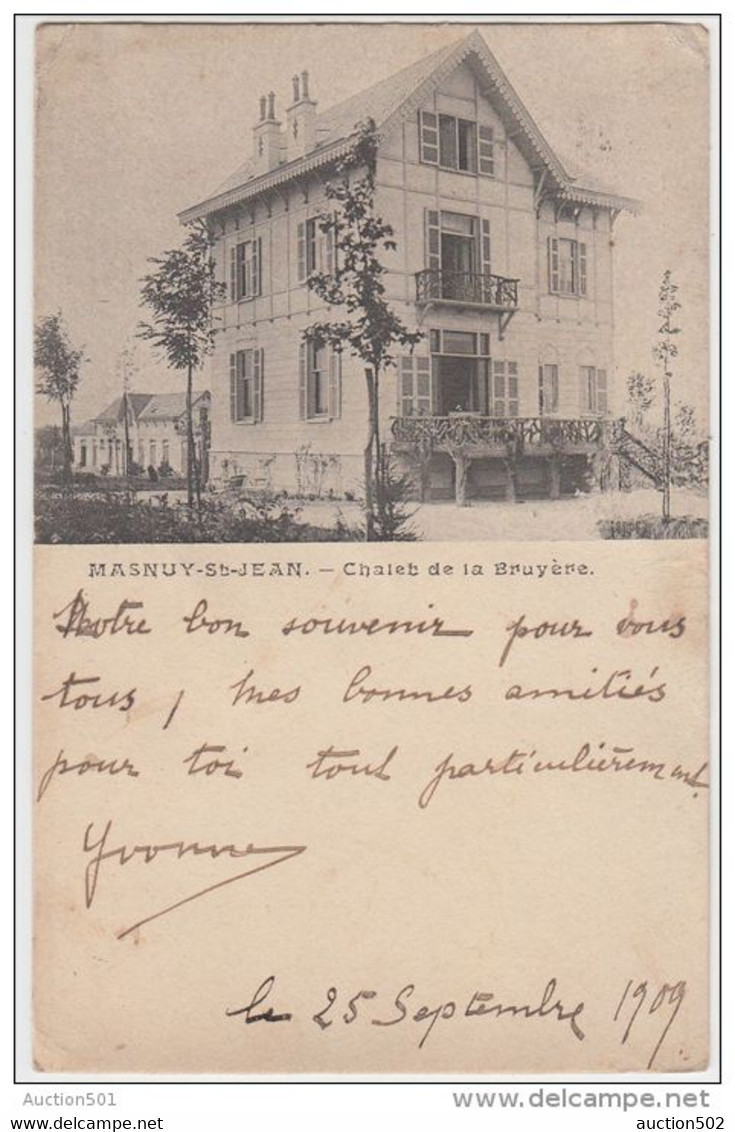 MASNUY-St-JEAN. — Chalet de la Bruyère.
Notre bon souvenir pour vous
tous, mes bonnes amitiés
pour toi tout particulièrement.
Yvonne
le 25 Septembre 1909
Auction501
www.delcampe.net
auction502
auction502